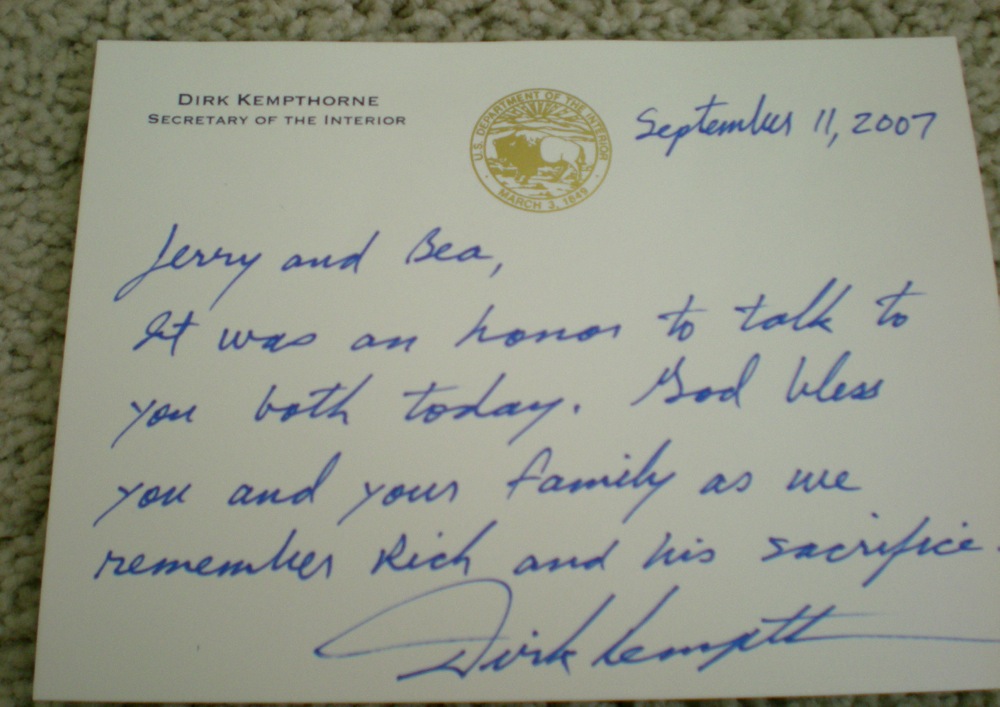 DIRK KEMPTHORNE
SECRETARY OF THE INTERIOR
U.S. DEPARTMENT OF THE INTERIOR
MARCH 3, 1849
September 11, 2007
Jerry and Bea,
It was an honor to talk to
you both today. God bless
you and your family as we
remember Rich and his sacrifice.
Dirk Kempthorne